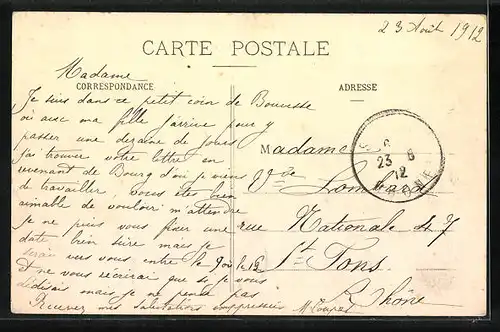 23 Août 1912
CARTE POSTALE
Madame
CORRESPONDANCE
ADRESSE
Je suis dans ce petit coin de Bouvesse
où avec ma fille j'arrive pour y
passer une dizaine de jours
j'ai trouver votre lettre en
revenant de Bourg d'où je viens
de travailler vous êtes bien
aimable de vouloir m'attendre
je ne puis vous fixer une
date bien sûre mais je
serai vers vous entre le 9 ou le 12
Et ne vous écrirai que si je vous
dédisais mais je ne pense pas
Recevez mes salutations empressées
Madame
Vve Lombard
rue Nationale 47
St Fons
Rhône
23 8
12